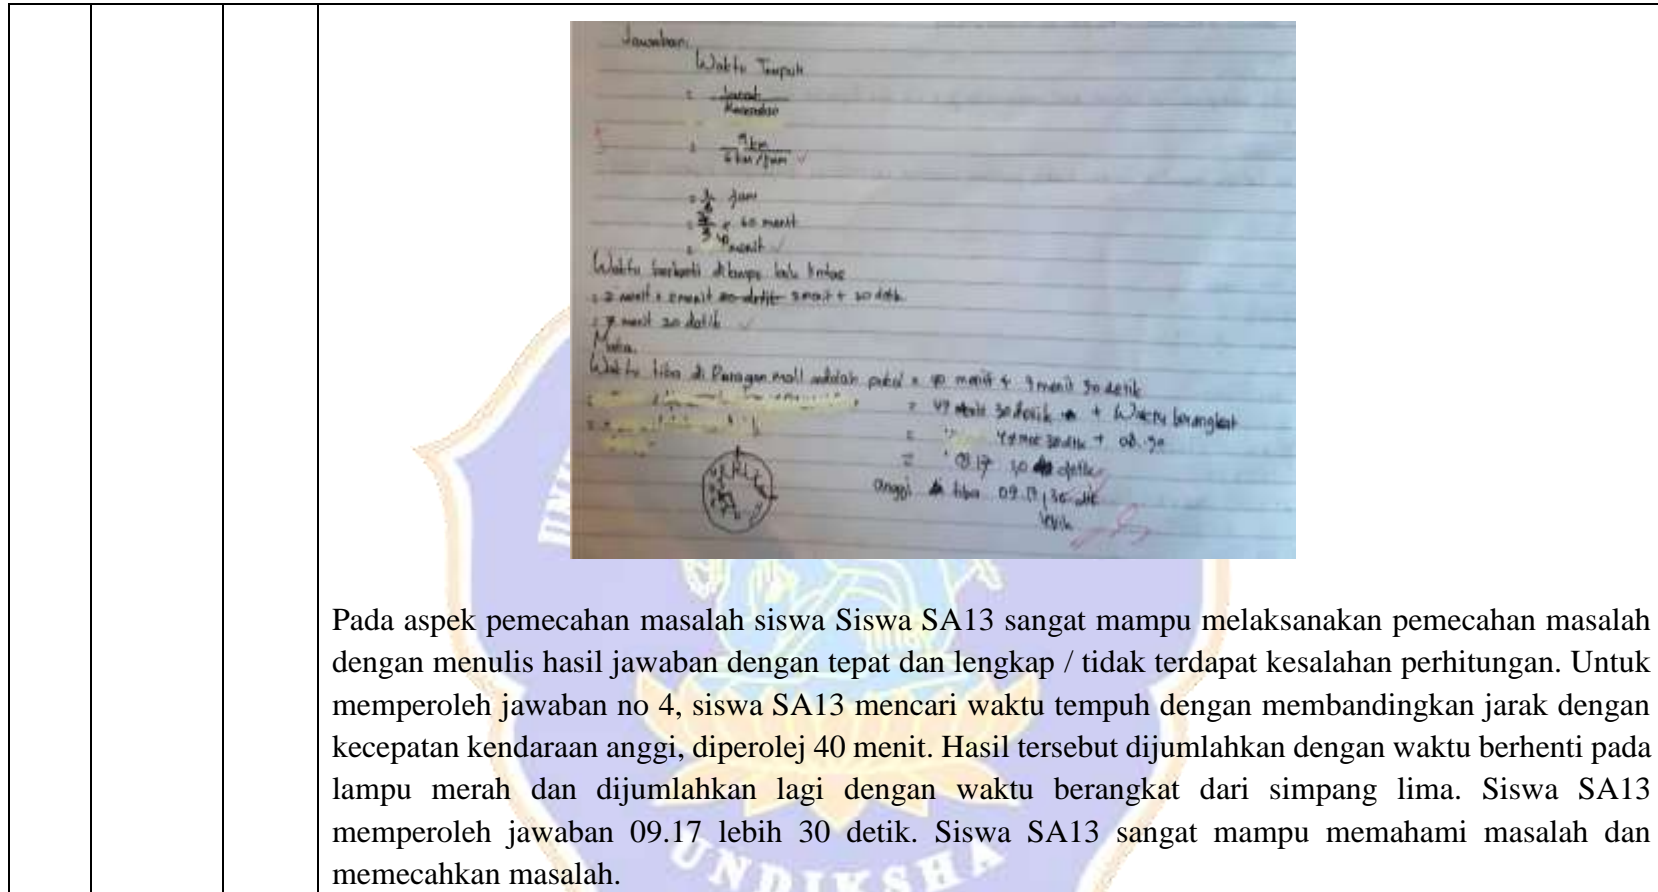 Jawaban:
Waktu Tempuh
= Jarak
Kecepatan
= km
6 km/jam
= jam
= x 60 menit
= 40 menit
Waktu berhenti dilampu lalu lintas
= 2 menit + 2 menit 30 detik 3 menit + 30 detik
= 7 menit 30 detik
Maka
Waktu tiba di Paragon mall adalah pukul = 40 menit + 7 menit 30 detik
= 47 menit 30 detik + Waktu berangkat
= 30 detik + 08.30
= 30 detik
anggi tiba 09.17
lebih
Pada aspek pemecahan masalah siswa Siswa SA13 sangat mampu melaksanakan pemecahan masalah
dengan menulis hasil jawaban dengan tepat dan lengkap / tidak terdapat kesalahan perhitungan. Untuk
memperoleh jawaban no 4, siswa SA13 mencari waktu tempuh dengan membandingkan jarak dengan
kecepatan kendaraan anggi, diperolej 40 menit. Hasil tersebut dijumlahkan dengan waktu berhenti pada
lampu merah dan dijumlahkan lagi dengan waktu berangkat dari simpang lima. Siswa SA13
memperoleh jawaban 09.17 lebih 30 detik. Siswa SA13 sangat mampu memahami masalah dan
memecahkan masalah.
UNDIKSHA